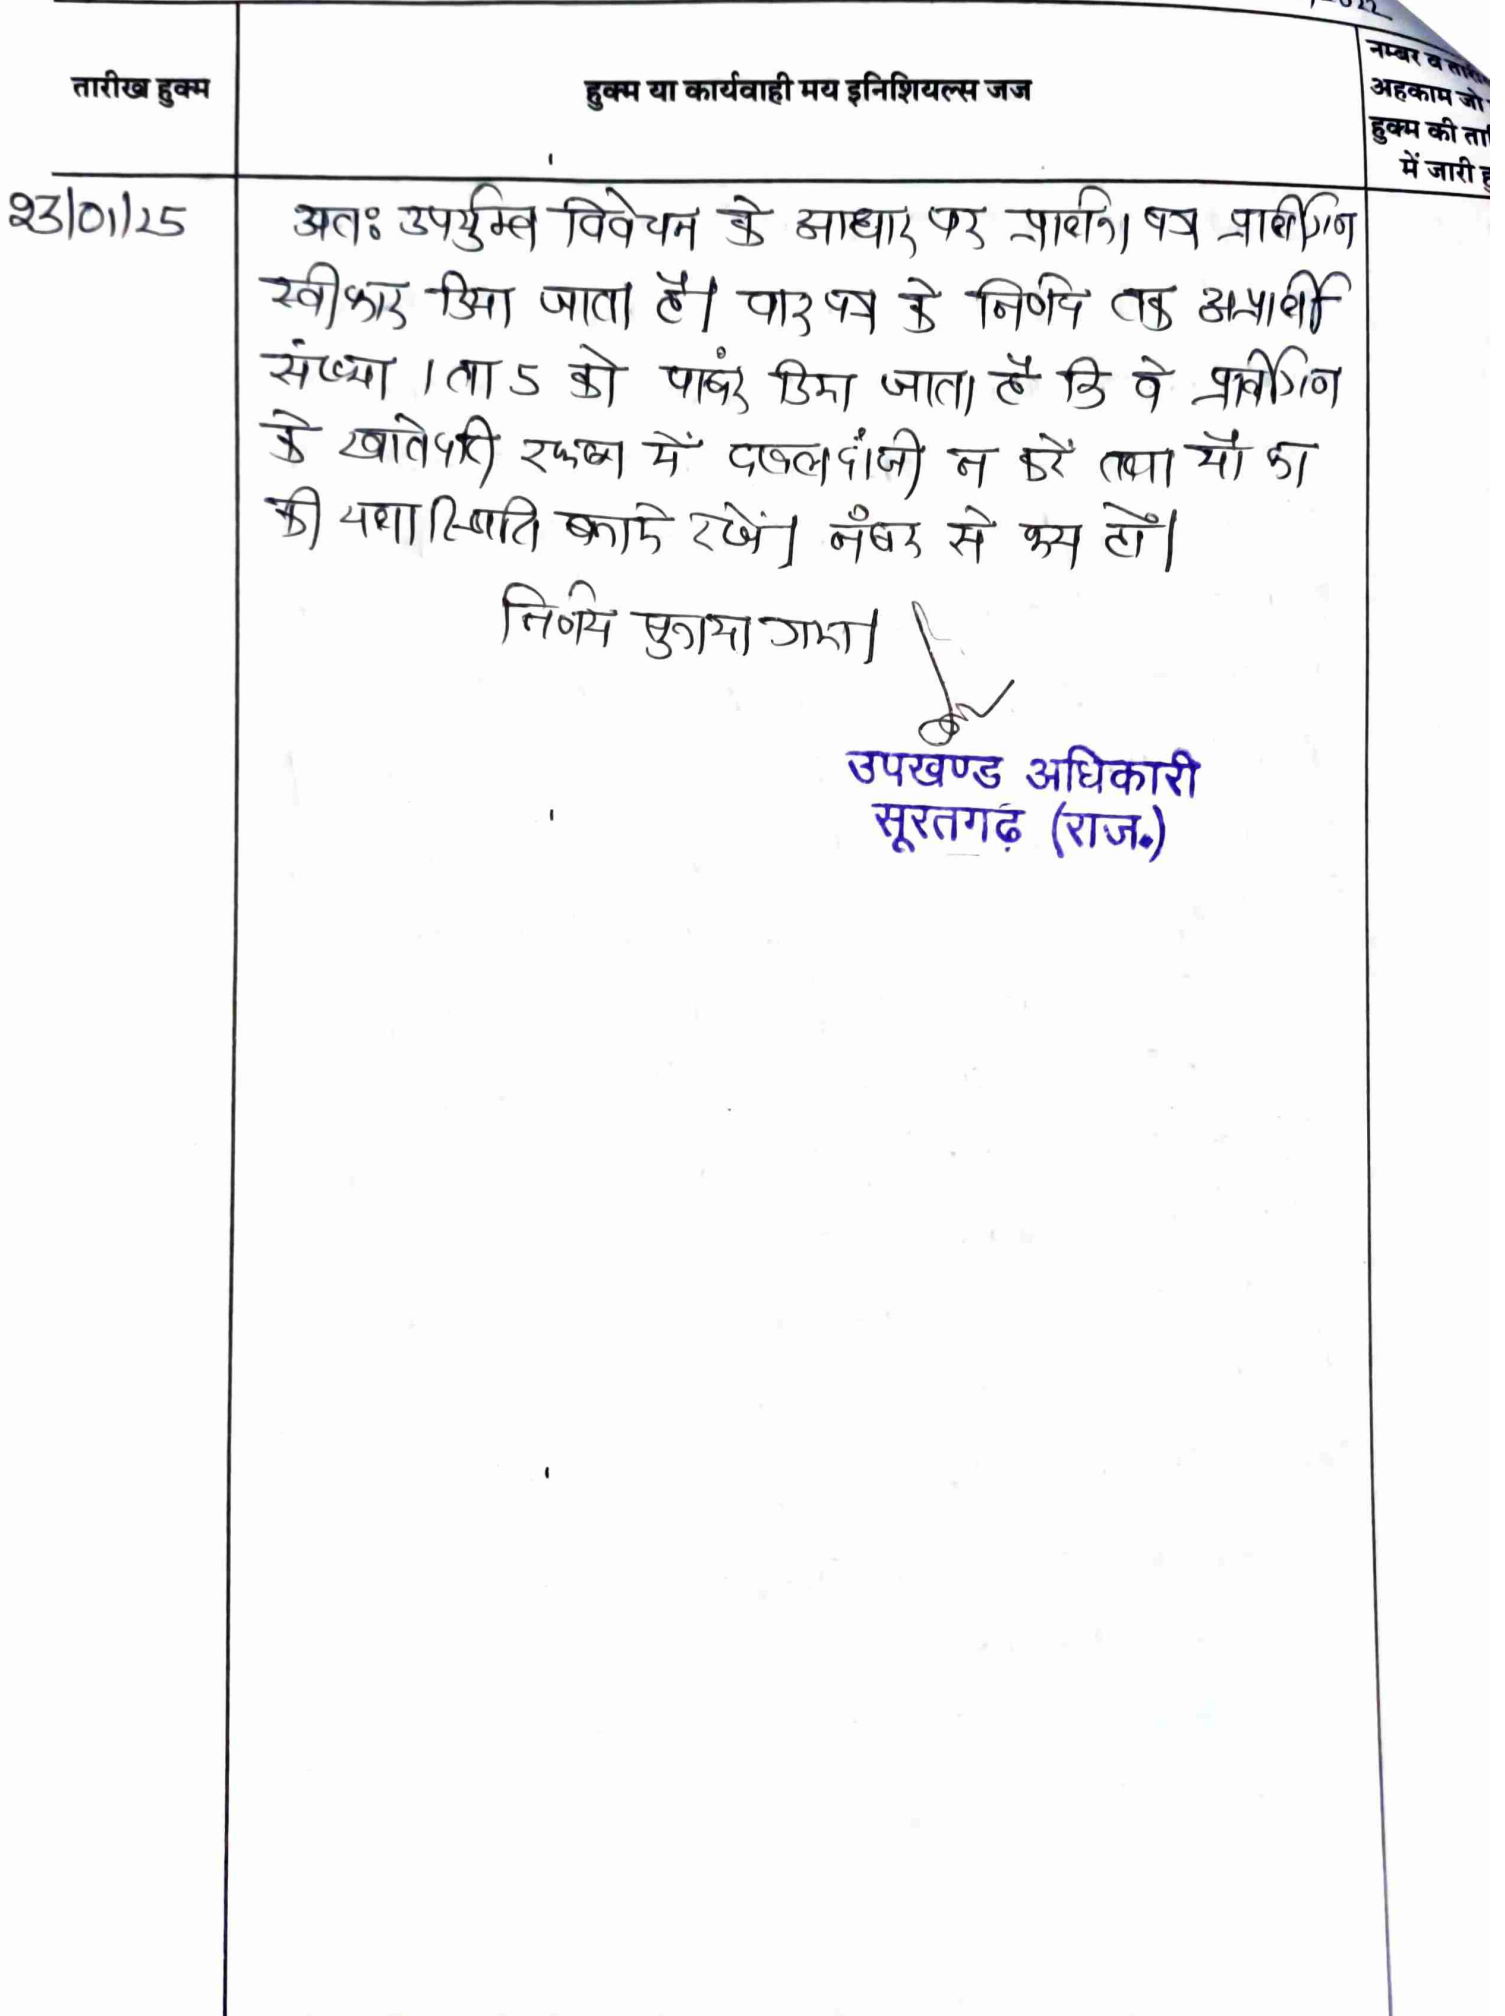 022
तारीख हुक्म
हुक्म या कार्यवाही मय इनिशियल्स जज
नम्बर व
अहकाम जो
हुक्म की
में जारी
23/01/25
अतः उपर्युक्त विवेचन के आधार पर प्रार्थना पत्र प्रार्थीगण
स्वीकार किया जाता है। वाद पत्र के निर्णय तक अप्रार्थी
संख्या 1 ता 5 को पाबंद किया जाता है कि वे प्रार्थीगण
के खातेदारी रकबा में दखलदांजी न करें तथा मौका
की यथास्थिति बनाऐ रखें। नंबर से कम हो।
निर्णय सुनाया गया।
उपखण्ड अधिकारी
सूरतगढ़ (राज.)